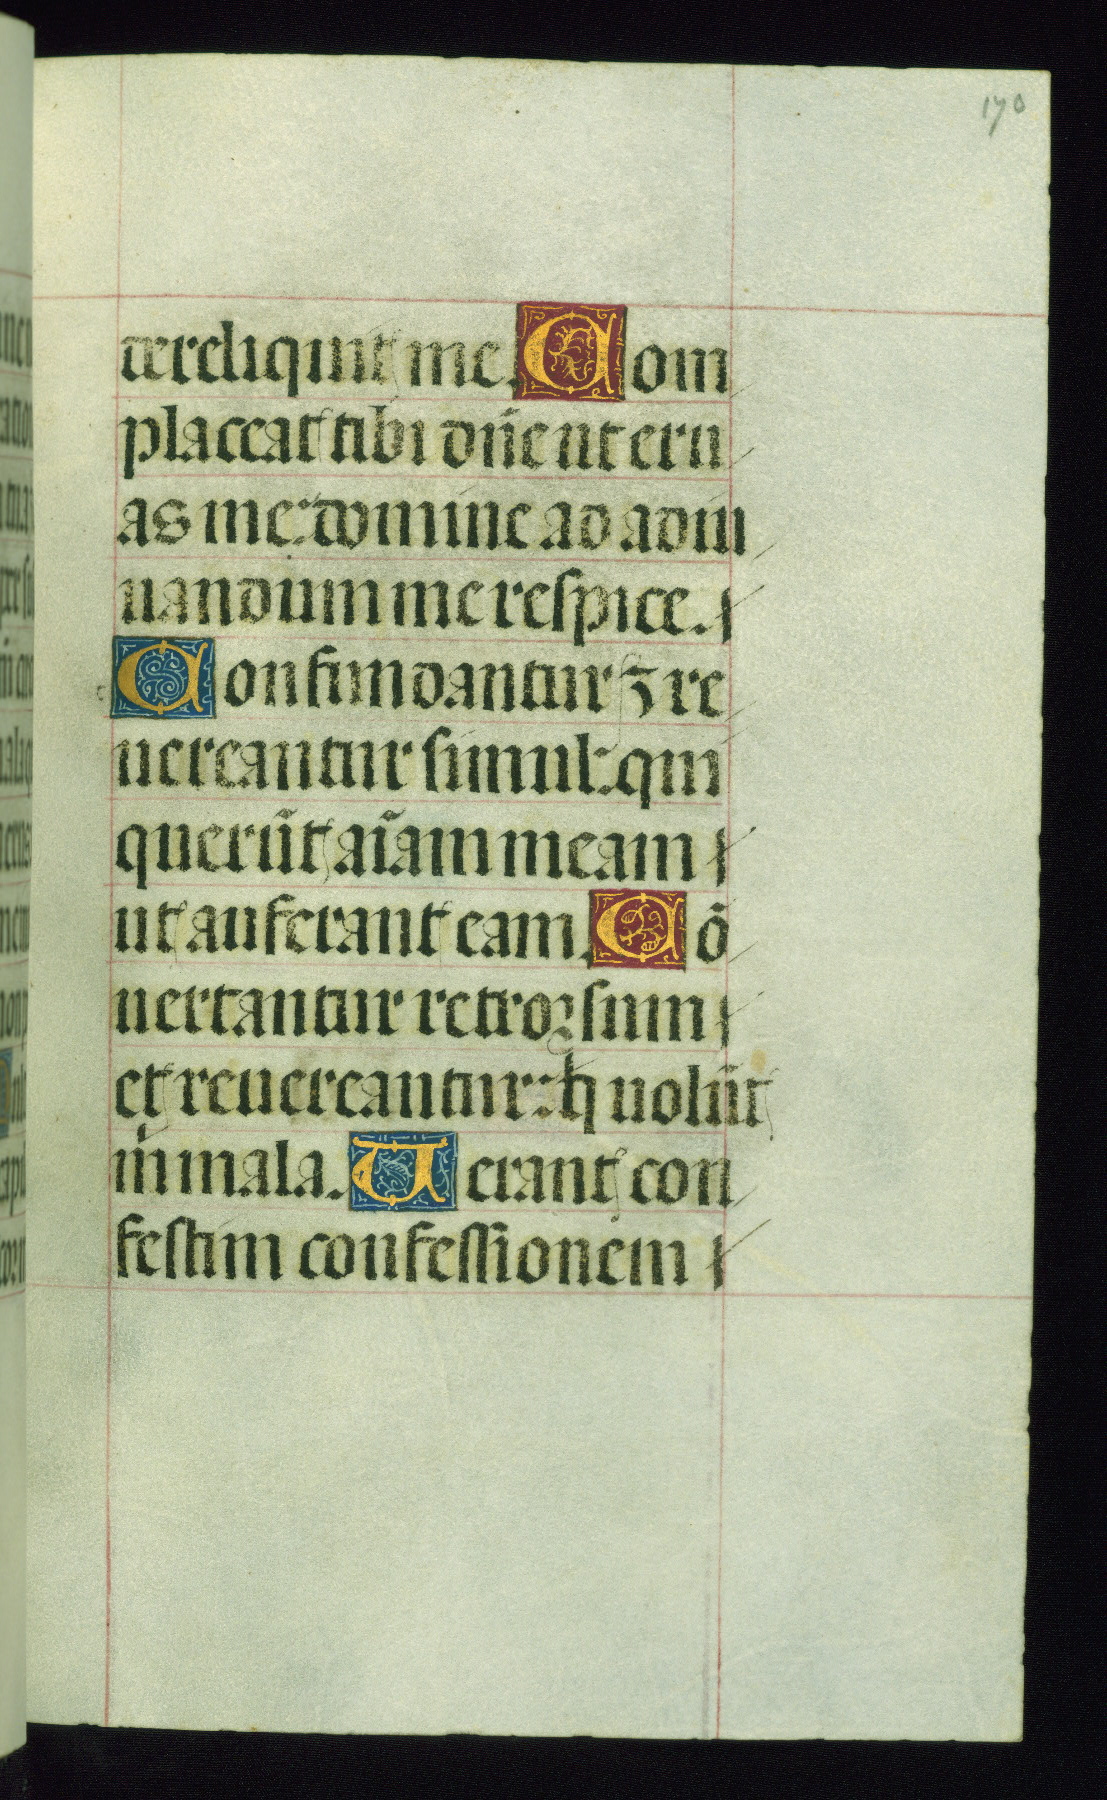 170
dereliquit me. Com
placeat tibi dn̄e ut eru
as me: domine ad adiu
uandum me respice.
Confundantur ⁊ re
uereantur simul: qui
querūt aīam meam
ut auferant eam. Cō
uertantur retroꝛsum
et reuereantur: q̇ uolūt
m̄ mala. Ferant con
festim confessionem